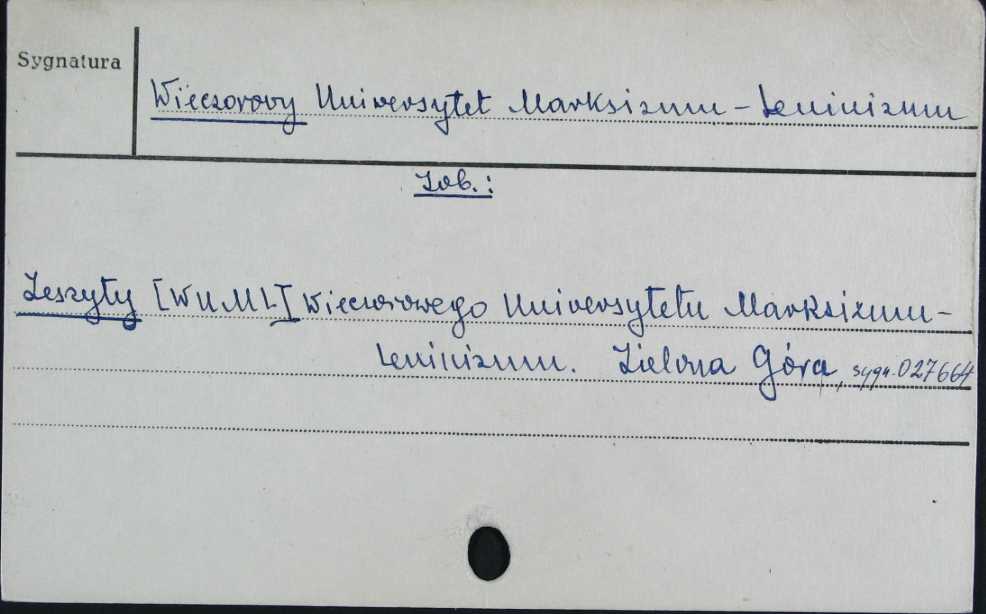 Sygnatura
Wieczorowy Uniwersytet Marksizmu-Leninizmu
Zob.:
Zeszyty [WUML] Wieczorowego Uniwersytetu Marksizmu-
Leninizmu. Zielona Góra, sygn. 027664